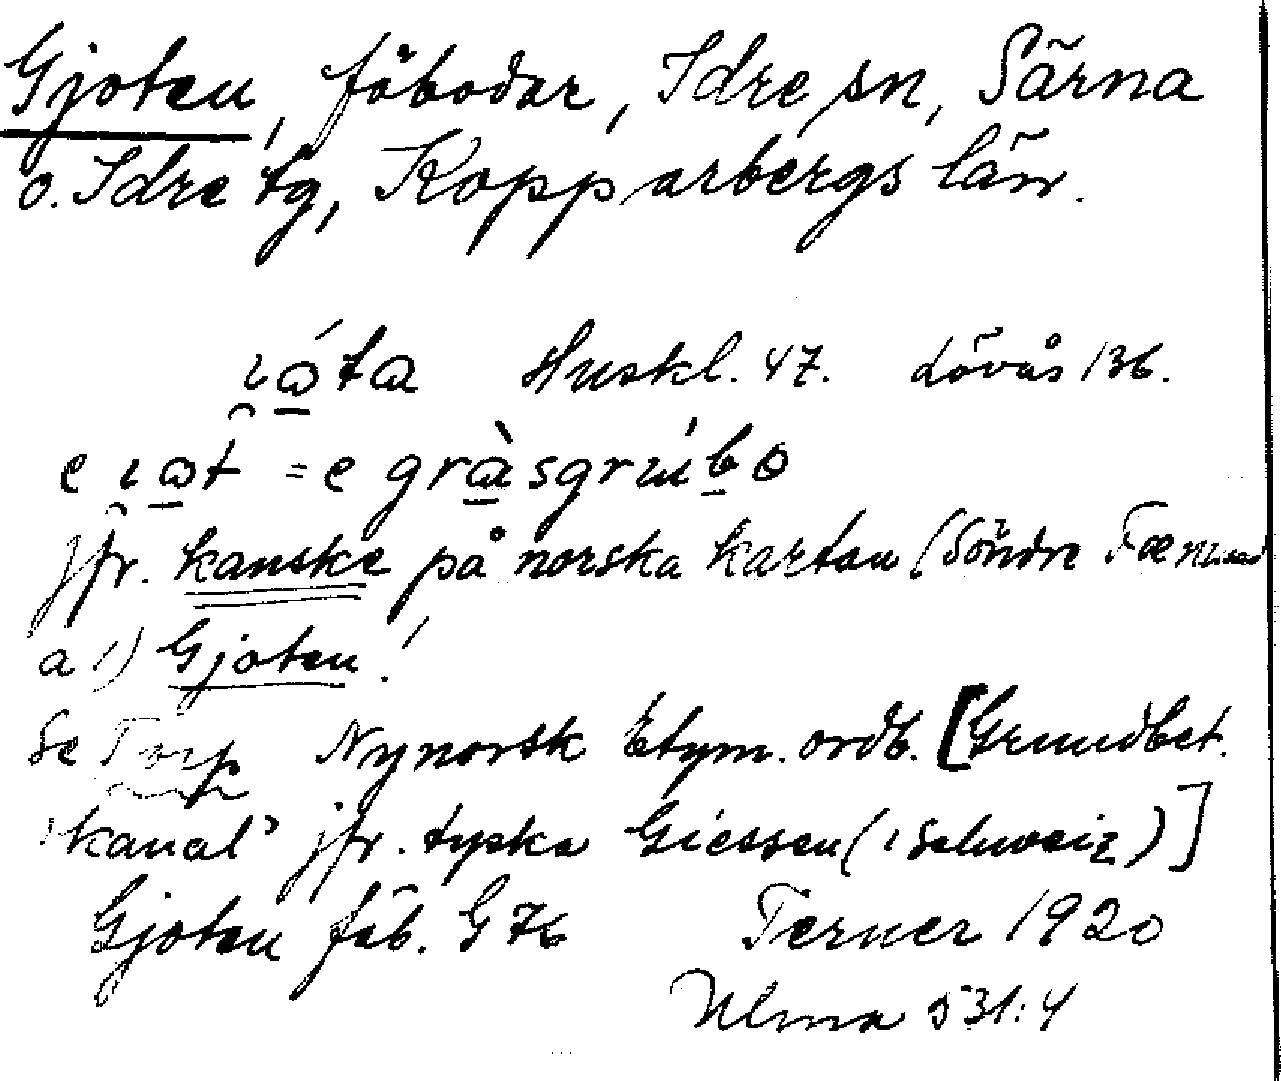 Gjoten, fäbodar, Idre sn, Särna
o. Idre tg, Kopparbergs län.
Huskl. 47. Lövås 136.
jfr. kanske på norska kartan (Söndre Fæmund
a 1) Gjoten!
Se Torp Nynorsk Etym. ordb. [Grundbet.
'kanal' jfr. tyska Giessen (i Schweiz)]
Gjoten fäb. G 76 Terner 1920
Ulma 531:4